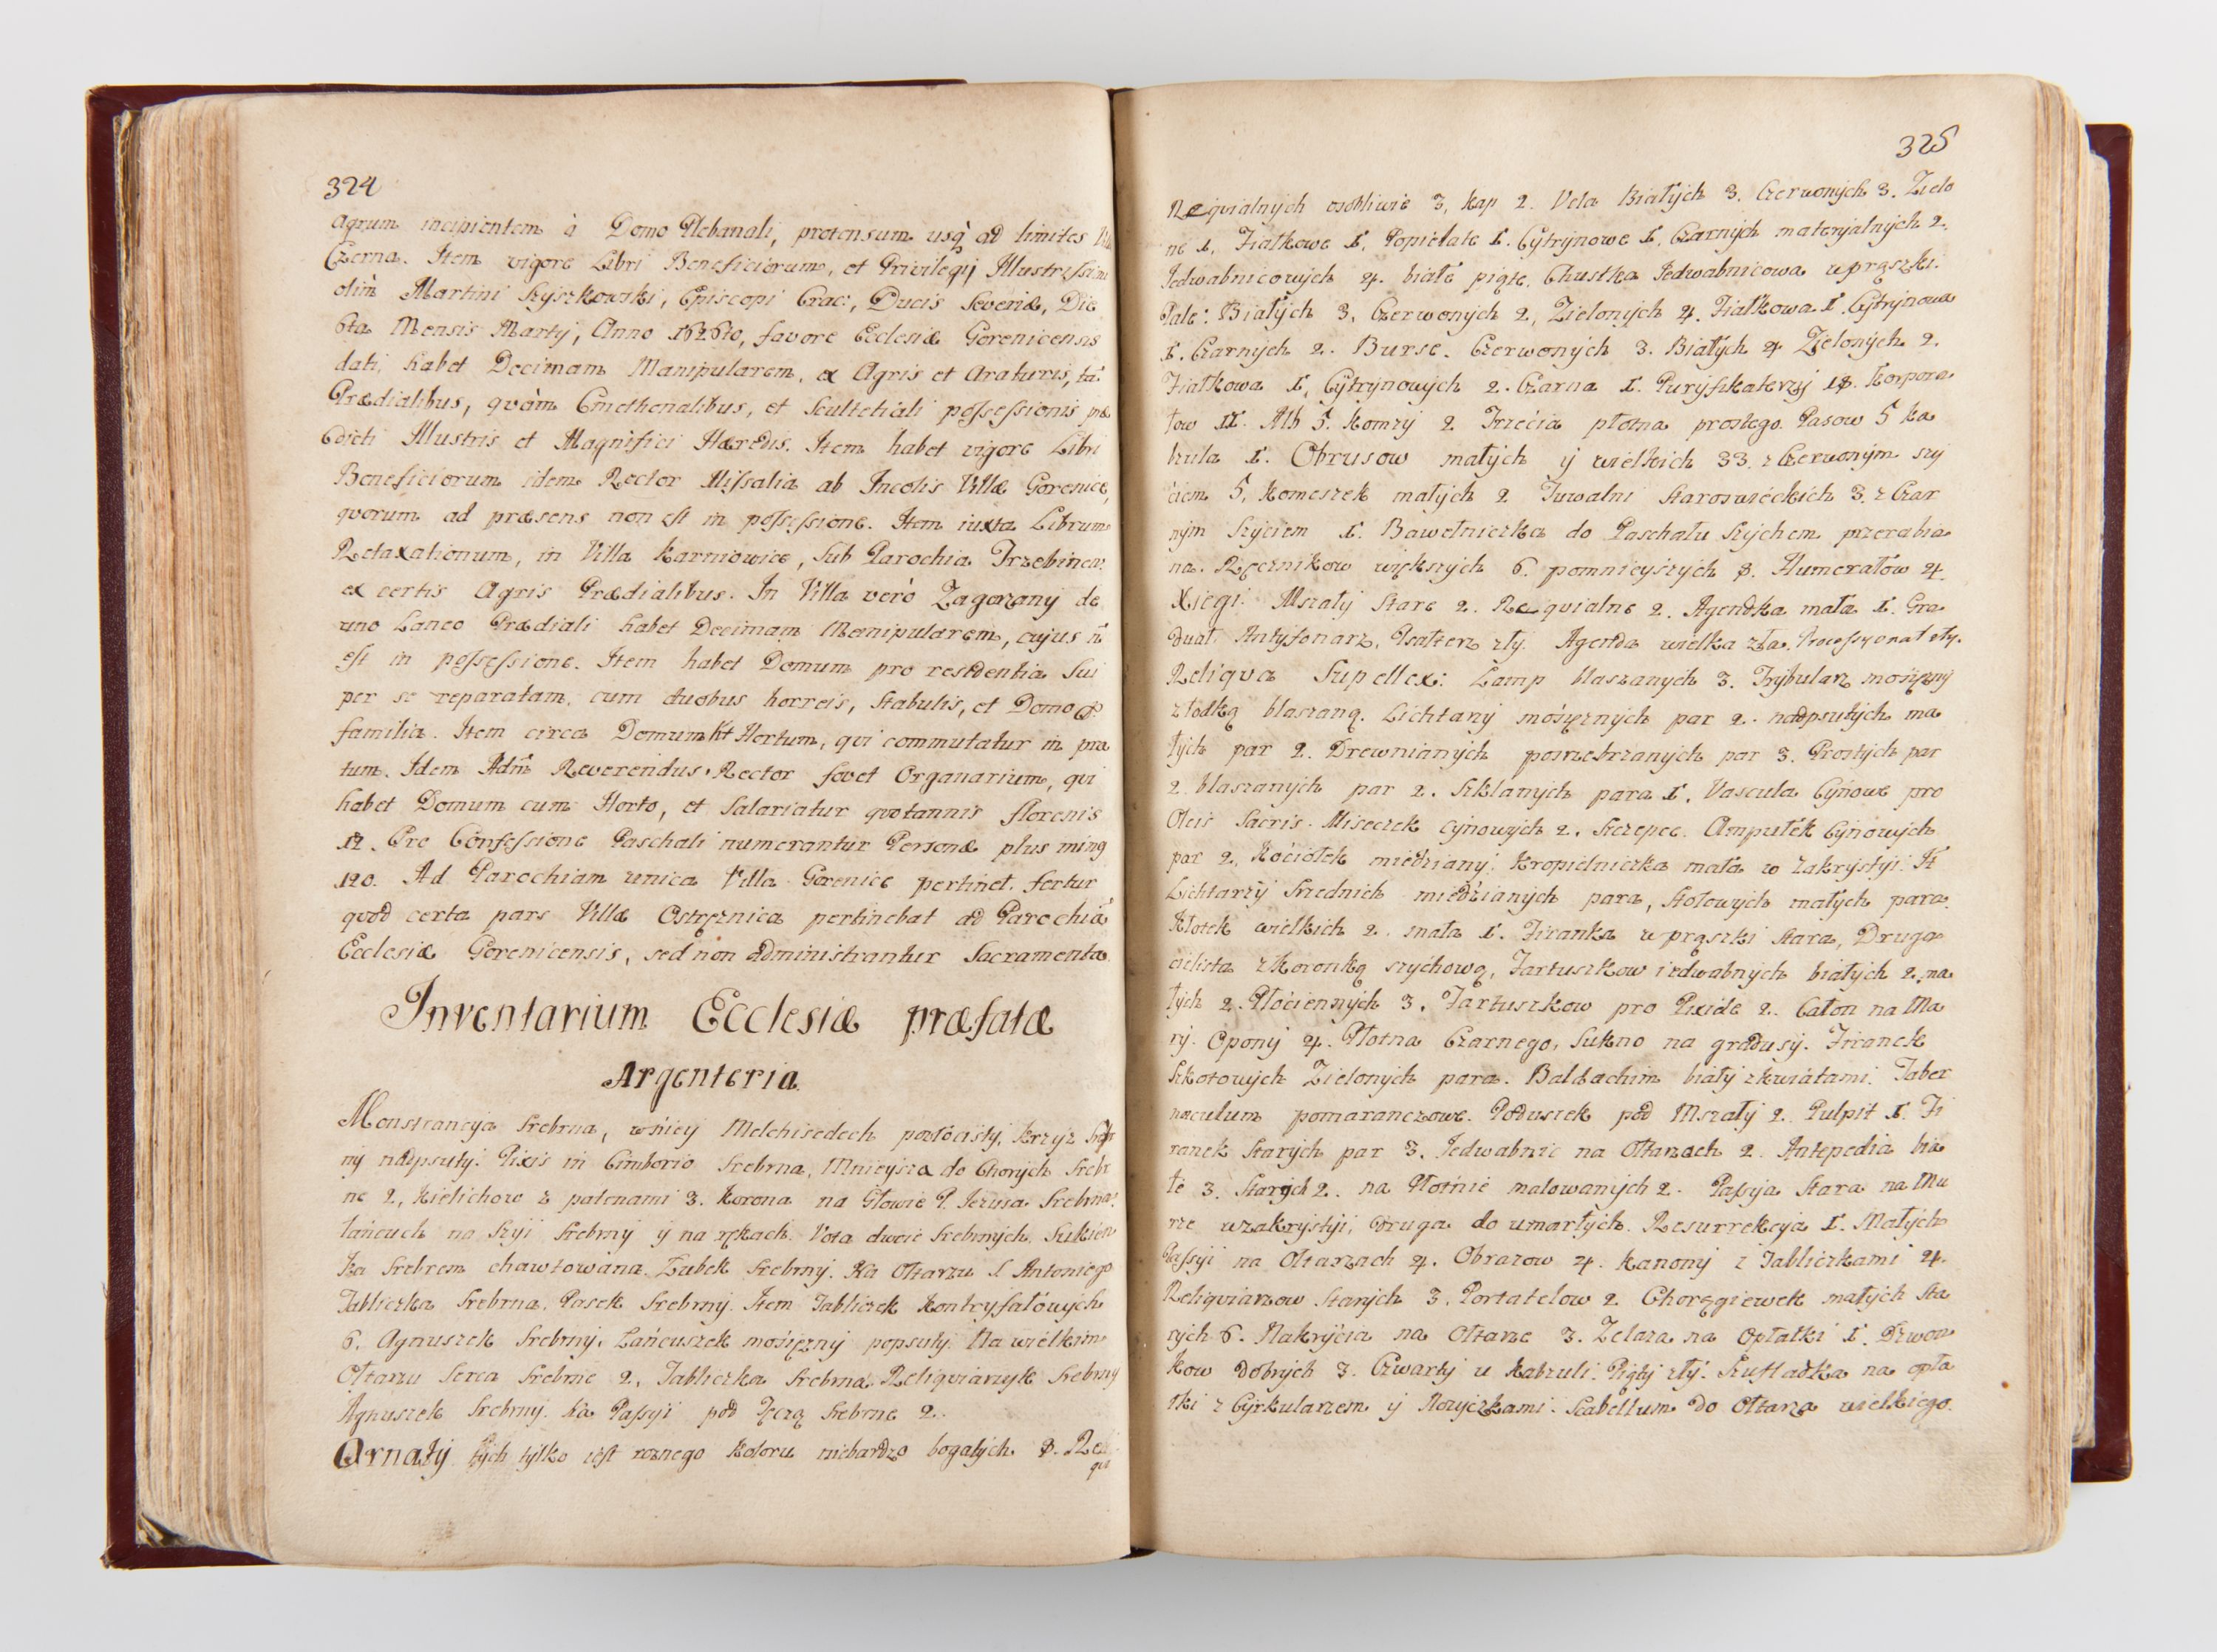 324
Agrum incipientem à Domo Plebanali, protensum usq̀ ad limites
Czerna. Item vigore Libri Beneficiorum, et Privilegij Illustrissimi
olim̀ Martini Szyszkowski, Episcopi Crac:, Ducis Severiæ, Die
6ta Mensis Martij, Anno 1626to, favore Ecclesiæ Gorenicensis
dati, habet Decimam Manipularem, ex Agris et Araturis, tā
Prædialibus, qvàm Cmethonalibus, et Scultetiali possessionis præ
dicti Illustris et Magnifici Hæredis. Item habet vigore Libri
Beneficiorum idem Rector Missalia ab Incolis Villæ Gorenice,
qvorum ad præsens non est in possessione. Item iuxta Librum
Retaxationum, in Villa Karniowice, sub Parochia Trzebinen:
ex certis Agris Prædialibus. In Villa verò Zagorzany de
uno Laneo Prædiali habet Decimam Manipularem, cujus ñ
est in possessione. Item habet Domum pro residentia sui
per se reparatam, cum duobus horreis, stabulis, et Domo p̃
familia. Item circa Domum ht Hortum, qvi commutatur in pra
tum. Idem Adm̃ Reverendus Rector fovet Organarium, qvi
habet Domum cum Horto, et Salariatur qvotannis florenis
12. Pro Confessione Paschali numerantur Personæ plus minq
120. Ad Parochiam unica Villa Gorenice pertinet. fertur
qvod certa pars Villæ Ostrężnica pertinebat ad Parochiā
Ecclesiæ Gorenicensis, sed non administrantur Sacramenta.
Inventarium Ecclesiæ præfatæ
Argenteria
Monstrancya Srebrna, wnicy Melchisedech pozłocisty, krzyz Srebr
ny nadpsuty. Pixis in Cimborio Srebrna, Mnieysza do Chorych Srebr
ne 2, Kielichow z patenami 3. Korona na Głowie P. Jezusa Srebrna.
łańcuch na Szyi Srebrny y na rękach. Vota dwoie Srebrnych. Sukien
ka Srebrem chawtowana. Ząbek Srebrny. Na Ołtarzu S Antoniego
Tabliczka Srebrna. Pasek Srebrny. Item Tabliczek kontryfałowych
6. Agnuszek Srebrny. Łańcuszek mosiężny popsuty. Na wielkim
Ołtarzu Serca Srebrne 2. Tabliczka Srebrna. Reliqviarzyk Srebrny
Agnuszek Srebrny. Na Passyi pod Tęczą Srebrne 2.
Ornaty tych tylko iest roznego koloru niebardzo bogatych 8. Re
qvi
325
Reqvialnych osobliwie 3, kap 2. Vela Białych 3. Czerwonych 3. Zielo
ne 1, Fiałkowe 1, Popielate 1. Cytrynowe 1, Czarnych materyalnych 2.
Jedwabnicowych 4. białe piąte, Chustka Jedwabnicowa w prązki.
Pale: Białych 3, Czerwonych 2, Zielonych 4. Fiałkowa 1. Cytrynowa
1. Czarnych 2. Burse. Czerwonych 3. Białych 4 Zielonych 2.
Fiałkowa 1, Cytrynowych 2. Czarna 1. Puryfikaterzy 18. Korpora
łow 11. Alb 5. Komży 2 Trzecia płotna prostego. Pasow 5 ka
bzula 1. Obrusow małych y wielkich 33. z Czerwonym szy
ciem 5, Komeszek małych 2 Tuwalni Staroswieckich 3. z Czar
nym Szyciem 1. Bawełniczka do Paschału Szychem przerabia
na. Ręcznikow większych 6. pomnieyszych 8. Humerałow 4.
Xięgi: Mszały Stare 2. Reqvialne 2. Agendka mała 1. Gra
dual. Antyfonarz, Psałterz zły. Agenda wielka zła. Processyonał zły.
Reliqva Supellex: Lamp blaszanych 3. Trybularz mosiężny
z łodką blaszaną. Lichtarzy mosiężnych par 2. nadpsutych ma
łych par 2. Drewnianych posrebrzanych par 3. Prostych par
2. blaszanych par 2. Szklanych para 1. Vascula Cynowe pro
Oleis Sacris. Miseczek cynowych 2. Szczepec. Ampułek Cynowych
par 2. Kociołek miedziany. Kropielniczka mała w zakrystyi. It
Lichtarzy Srednich miedzianych para, Stołowych małych para.
Kłotek wielkich 2. mała 1. Firanka w prązki stara, Druga
cielista z Koronką szychową, Fartuszkow iedwabnych białych 2. ma
łych 2. Płociennych 3. Fartuszkow pro Pixide 2. Całon na Ma
ry. Opony 4. Płotna Czarnego, Sukno na gradusy. Firanek
Szkotowych Zielonych para. Baldachim biały z kwiatami. Taber
naculum pomaranczowe. Poduszek pod Mszały 2. Pulpit 1. Fi
ranek Starych par 3. Jedwabnic na Ołtarzach 2. Antepedia bia
łe 3. Starych 2. na Płotnie malowanych 2. Passya Stara na Mu
rze w zakrystyi, druga do umarłych. Resurrekcya 1. Małych
Passyi na Ołtarzach 4. Obrazow 4. Kanony z Tabliczkami 4.
Reliqviarzow Starych 3. Portatelow 2 Chorągiewek małych Sta
rych 6. Nakrycia na Ołtarze 3. Żelaza na Opłatki 1. Dzwon
kow dobrych 3. Czwarty u kabzuli. Piąty zły. Szufladka na opła
tki z Cyrkularzem y Nożyczkami. Scabellum do Ołtarza wielkiego.